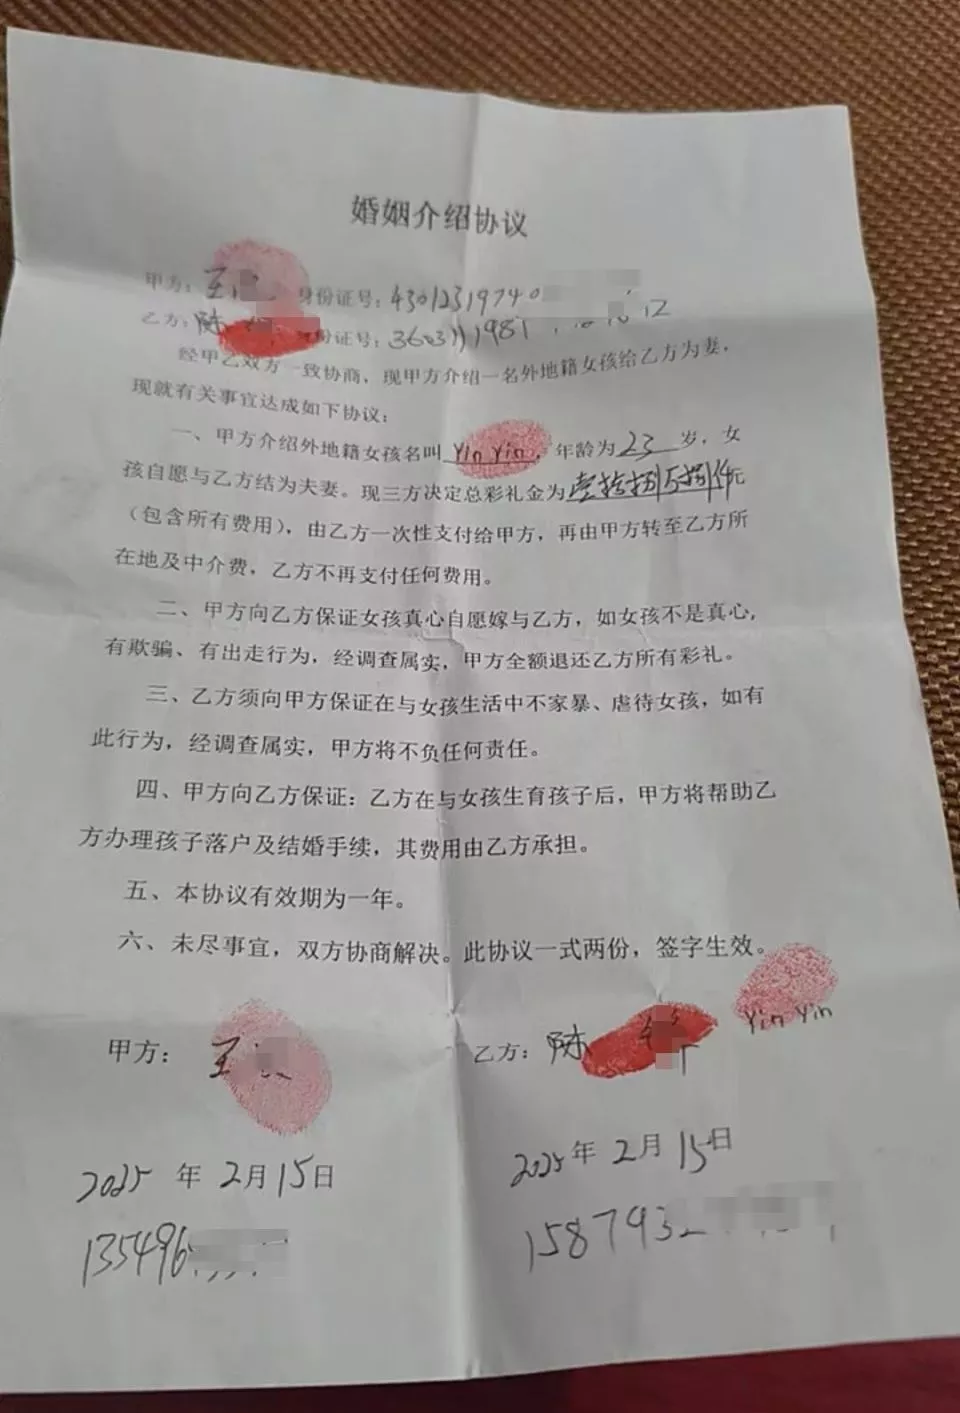 婚姻介绍协议
甲方：王 身份证号：43012319740
乙方：陈 身份证号：3603111981
经甲乙双方一致协商，现甲方介绍一名外地籍女孩给乙方为妻，
现就有关事宜达成如下协议：
一、甲方介绍外地籍女孩名叫 Yin Yin，年龄为 23 岁，女
孩自愿与乙方结为夫妻。现三方决定总彩礼金为壹拾捌万捌仟元
（包含所有费用），由乙方一次性支付给甲方，再由甲方转至乙方所
在地及中介费，乙方不再支付任何费用。
二、甲方向乙方保证女孩真心自愿嫁与乙方，如女孩不是真心，
有欺骗、有出走行为，经调查属实，甲方全额退还乙方所有彩礼。
三、乙方须向甲方保证在与女孩生活中不家暴、虐待女孩，如有
此行为，经调查属实，甲方将不负任何责任。
四、甲方向乙方保证：乙方在与女孩生育孩子后，甲方将帮助乙
方办理孩子落户及结婚手续，其费用由乙方承担。
五、本协议有效期为一年。
六、未尽事宜，双方协商解决。此协议一式两份，签字生效。
甲方： 王
乙方： 陈 Yin Yin
2025 年 2 月 15 日
2025 年 2 月 15 日
135496
1587932